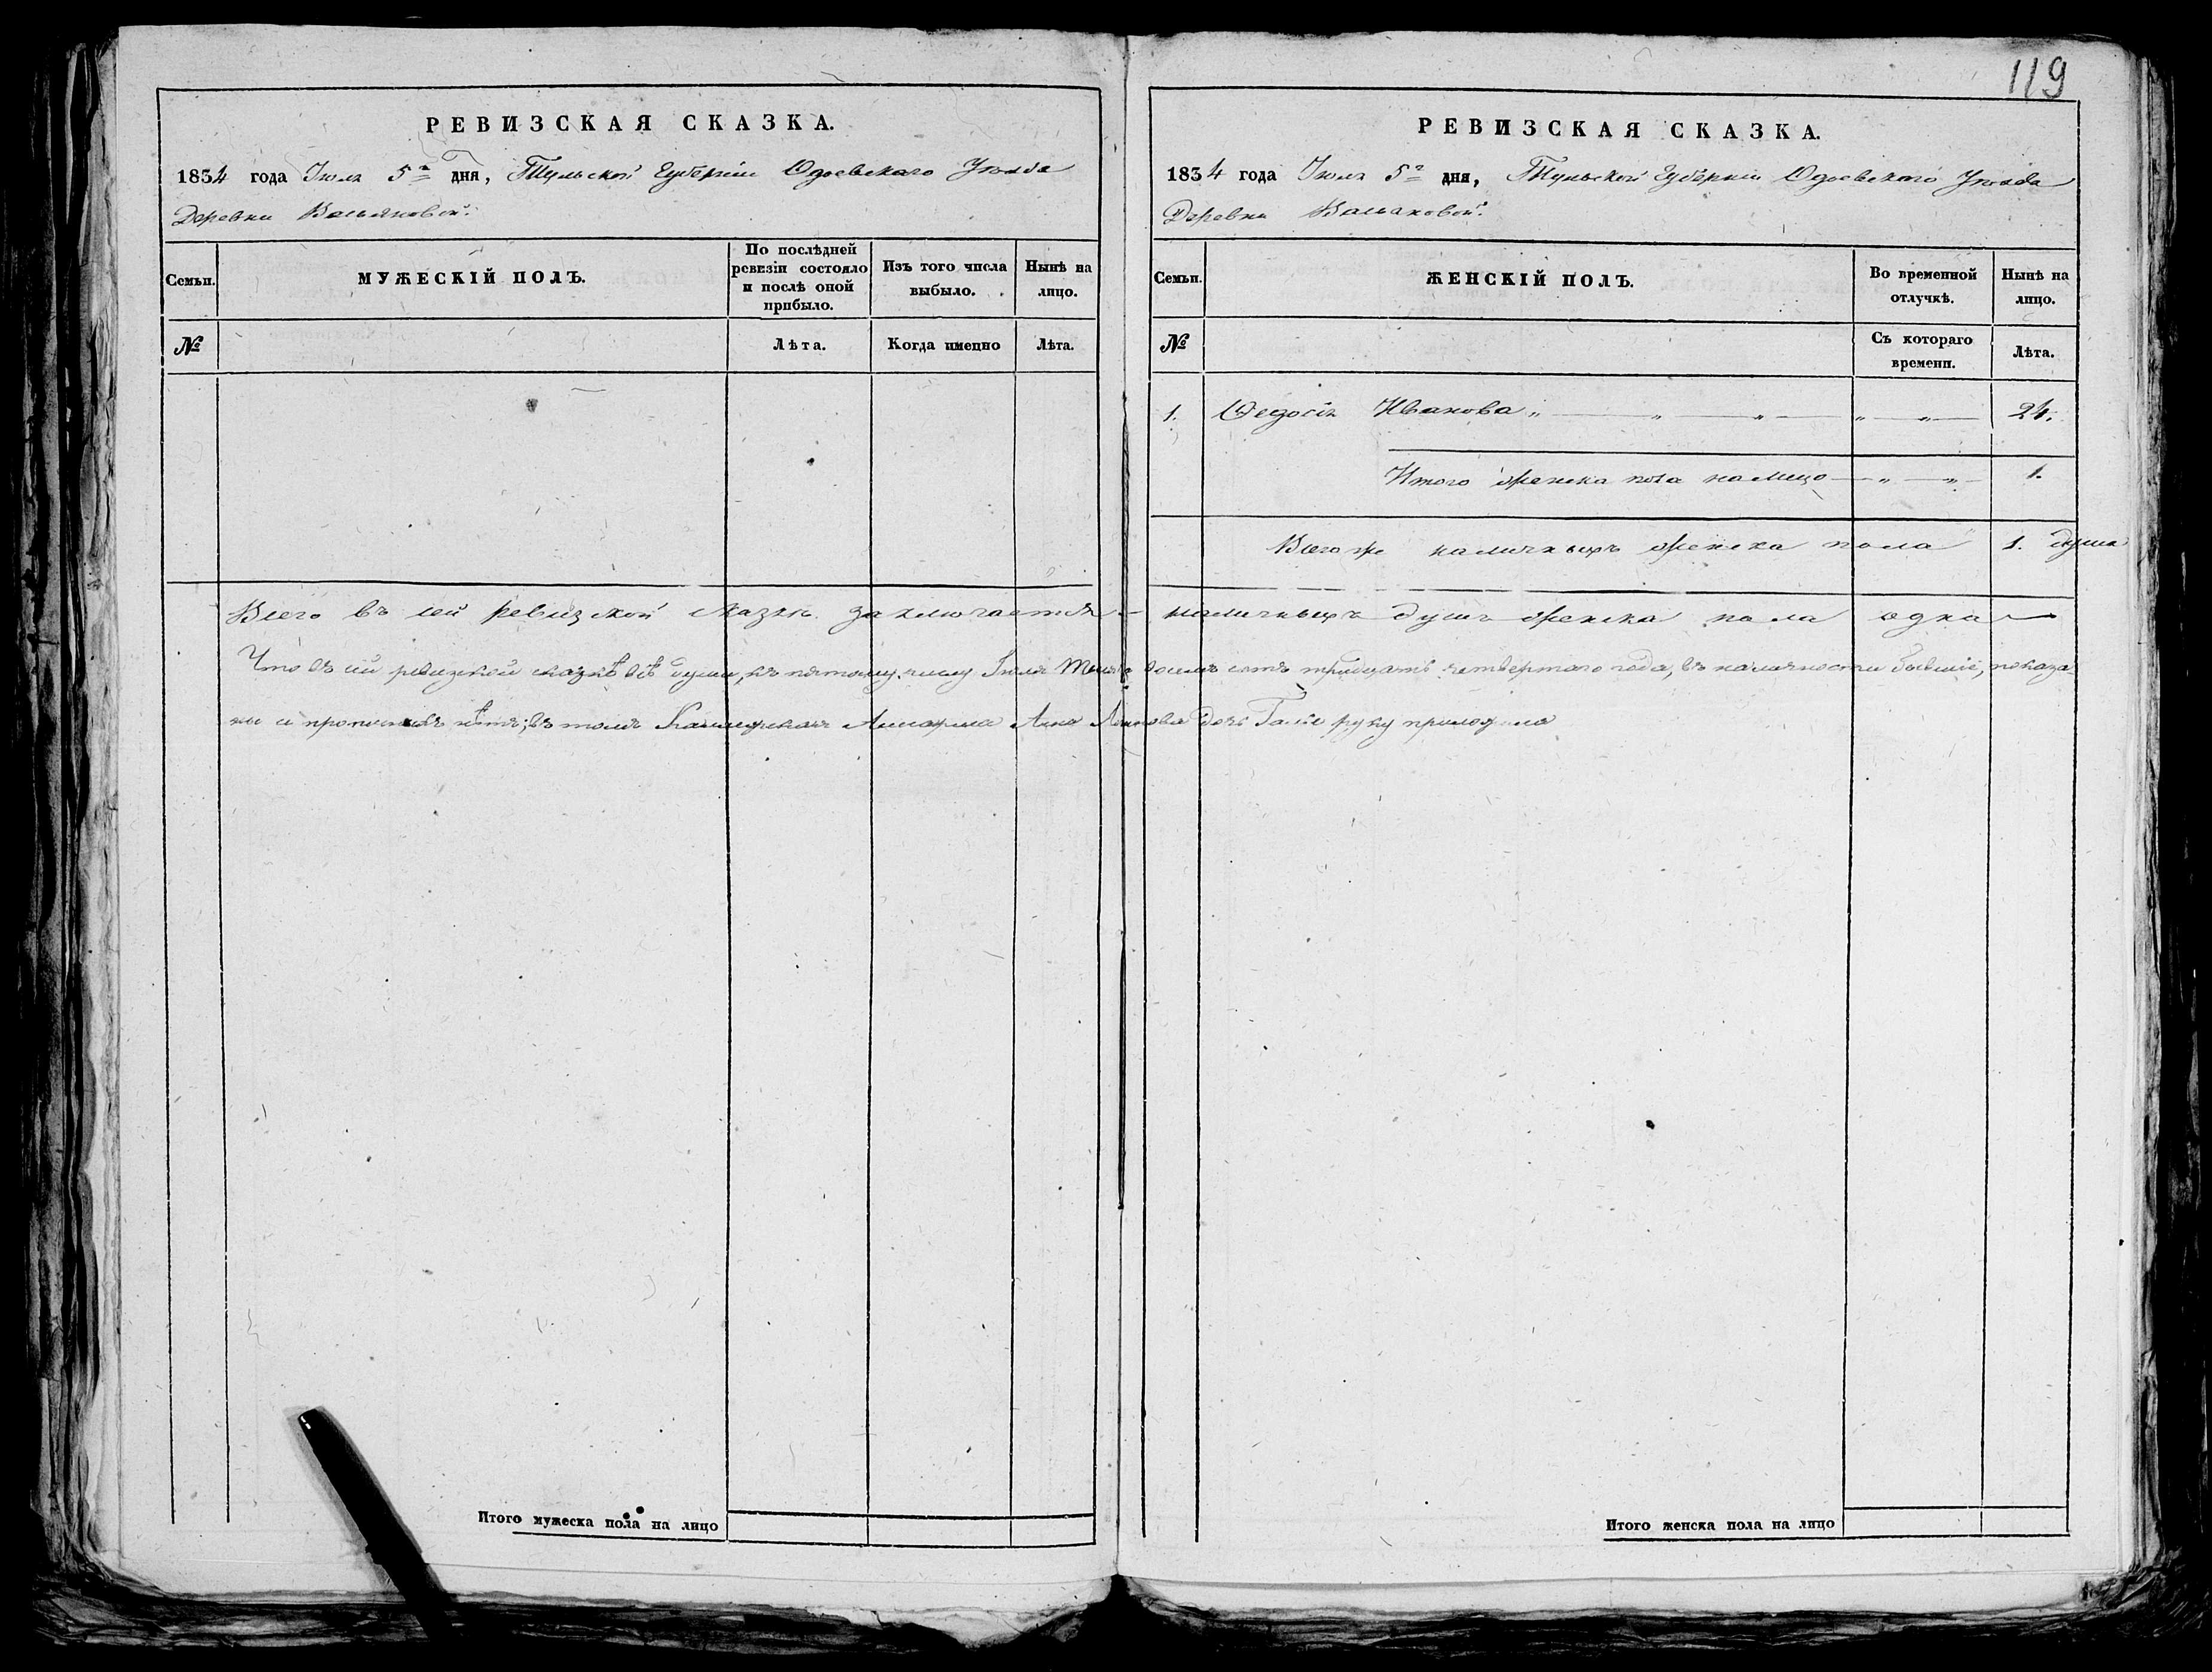 119
РЕВИЗСКАЯ СКАЗКА.
1834 года Іюля 5го дня, Тульской Губерніи Одоевскаго Уѣзда
Деревни
Семьи. МУЖЕСКІЙ ПОЛЪ. По послѣдней ревизіи состояло и послѣ оной прибыло. Изъ того числа выбыло. Нынѣ на лицо.
№ Лѣта. Когда имецно Лѣта.
Итого мужеска пола на лицо
РЕВИЗСКАЯ СКАЗКА.
1834 года Іюля 5го дня, Тульской Губерніи Одоевскаго Уѣзда
Деревни
Семьи. ЖЕНСКІЙ ПОЛЪ. Во временной отлучкѣ. Нынѣ на лицо.
№ Съ котораго времени. Лѣта.
1. Ѳедосія Иванова 24.
Итого женска пола налицо 1.
Всего же наличныхъ женска пола 1. душа
Всего въ сей ревизской сказкѣ заключается наличныхъ душъ женска пола одна
Что въ сей ревизской сказкѣ всѣ души, къ пятому числу Іюля тысяча восемь сотъ тридцать четвертаго года, въ наличности бывшіе, показа-
ны и прописныхъ нѣтъ; въ томъ дочь руку приложила
Итого женска пола на лицо